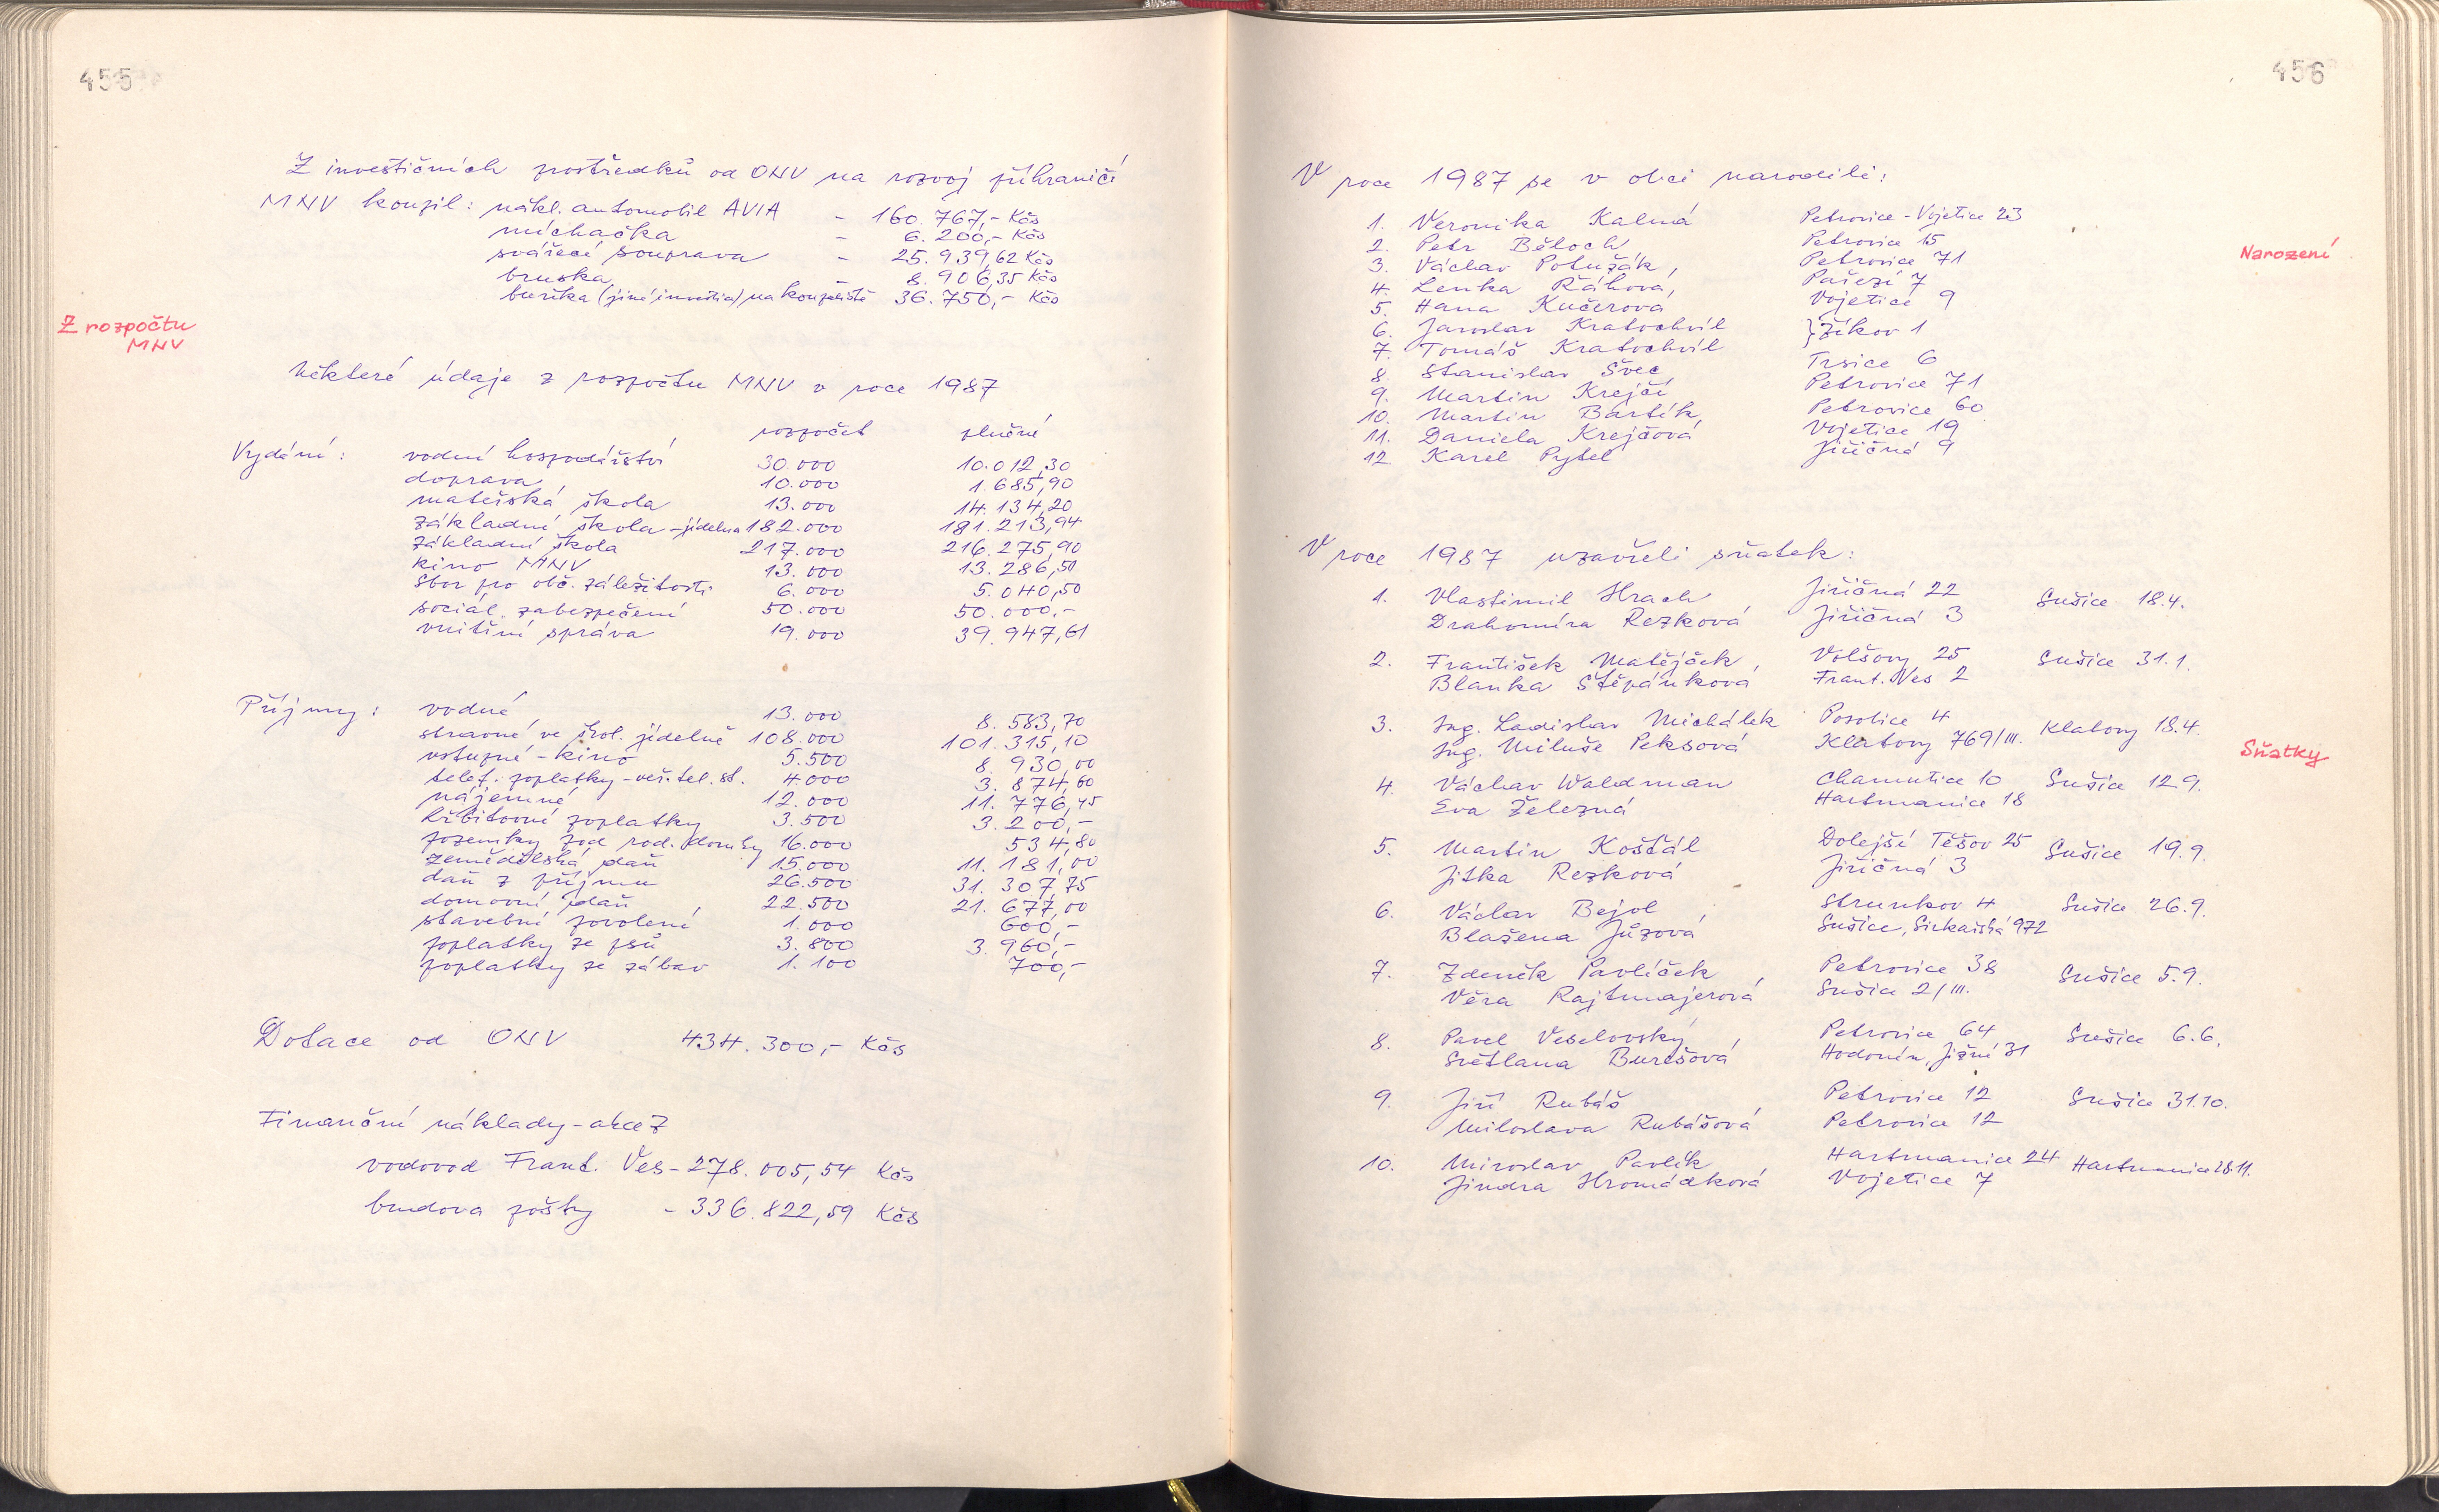 455
Z investičních prostředků od ONV na rozvoj příhraničí
MNV koupil: nákl. automobil AVIA - 160.767,- Kčs
míchačka - 6.200,- Kčs
svářecí souprava - 25.939,62 Kčs
bruska - 8.906,35 Kčs
buňka (jiné investice) na koupaliště 36.750,- Kčs
Z rozpočtu
MNV
Některé údaje z rozpočtu MNV v roce 1987
rozpočet plnění
Vydání: vodní hospodářství 30.000 10.012,30
doprava 10.000 1.685,90
mateřská škola 13.000 14.134,20
základní škola - jídelna 182.000 181.213,94
základní škola 217.000 216.275,90
kino MNV 13.000 13.286,50
Sbor pro obč. záležitosti 6.000 5.040,50
sociál. zabezpečení 50.000 50.000.-
vnitřní správa 19.000 39.947,61
Příjmy: vodné 13.000 8.583,70
stravné ve škol. jídelně 108.000 101.315,10
vstupné - kino 5.500 8.930,00
telef. poplatky - veř. tel. st. 4.000 3.874,60
nájemné 12.000 11.776,45
hřbitovní poplatky 3.500 3.200,-
pozemky pod rod. domky 16.000 534,80
zemědělská daň 15.000 11.181,00
daň z příjmu 26.500 31.307,75
domovní daň 22.500 21.677,00
stavební povolení 1.000 600,-
poplatky ze psů 3.800 3.960,-
poplatky ze zábav 1.100 700,-
Dotace od ONV 434.300,- Kčs
Finanční náklady - akce Z
vodovod Frant. Ves - 278.005,54 Kčs
budova pošty - 336.822,59 Kčs
456
V roce 1987 se v obci narodili:
1. Veronika Kalná Petrovice - Vojetice 23
2. Petr Běloch, Petrovice 15
3. Václav Potužák, Petrovice 71
4. Lenka Ráhová, Pařezí 7
5. Hana Kučerová Vojetice 9
6. Jaroslav Kratochvíl } Žikov 1
7. Tomáš Kratochvíl
8. Stanislav Švec Trsice 6
9. Martin Krejčí Petrovice 71
10. Martin Bartík, Petrovice 60
11. Daniela Krejčová Vojetice 19
12. Karel Pytel Jiřičná 9
Narození
V roce 1987 uzavřeli sňatek:
1. Vlastimil Hrach Jiřičná 22 Sušice 18.4.
Drahomíra Rezková Jiřičná 3
2. František Matějček, Volšovy 25 Sušice 31.1.
Blanka Štěpánková Frant. Ves 2
3. Ing. Ladislav Michálek Posobice 4 Klatovy 18.4.
Ing. Miluše Peksová Klatovy 769/III.
Sňatky
4. Václav Waldman Chamutice 10 Sušice 12.9.
Eva Železná Hartmanice 18
5. Martin Košťál Dolejší Těšov 25 Sušice 19.9.
Jitka Rezková Jiřičná 3
6. Václav Bejvl, Strunkov 4 Sušice 26.9.
Blažena Jůzová Sušice, Sirkařská 972
7. Zdeněk Pavlíček, Petrovice 38 Sušice 5.9.
Věra Rajtmajerová Sušice 2/III.
8. Pavel Veselovský, Petrovice 64 Sušice 6.6.
Světlana Burešová Hodonín, Jižní 31
9. Jiří Rubáš Petrovice 12 Sušice 31.10.
Miloslava Rubášová Petrovice 12
10. Miroslav Pavlík Hartmanice 24 Hartmanice 28.11.
Jindra Hromádková Vojetice 7